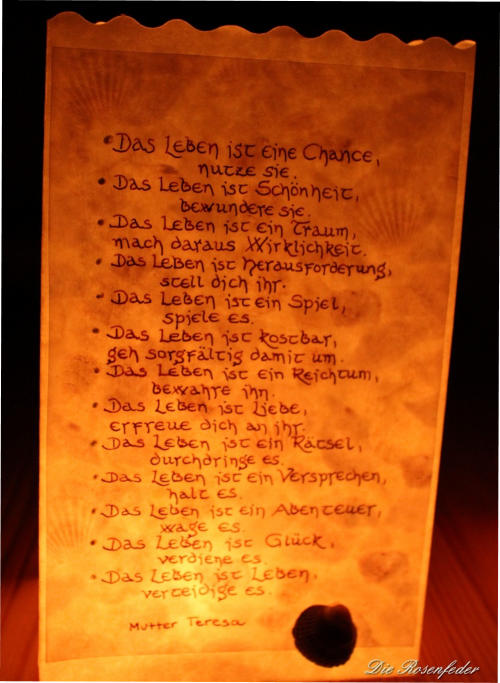 • Das Leben ist eine Chance,
nutze sie.
• Das Leben ist Schönheit,
bewundere sie.
• Das Leben ist ein Traum,
mach daraus Wirklichkeit.
• Das Leben ist Herausforderung,
stell dich ihr.
• Das Leben ist ein Spiel,
spiele es.
• Das Leben ist kostbar,
geh sorgfältig damit um.
• Das Leben ist ein Reichtum,
bewahre ihn.
• Das Leben ist Liebe,
erfreue dich an ihr.
• Das Leben ist ein Rätsel,
durchdringe es.
• Das Leben ist ein Versprechen,
halt es.
• Das Leben ist ein Abenteuer,
wage es.
• Das Leben ist Glück,
verdiene es.
• Das Leben ist Leben,
verteidige es.
Mutter Teresa
Die Rosenfeder